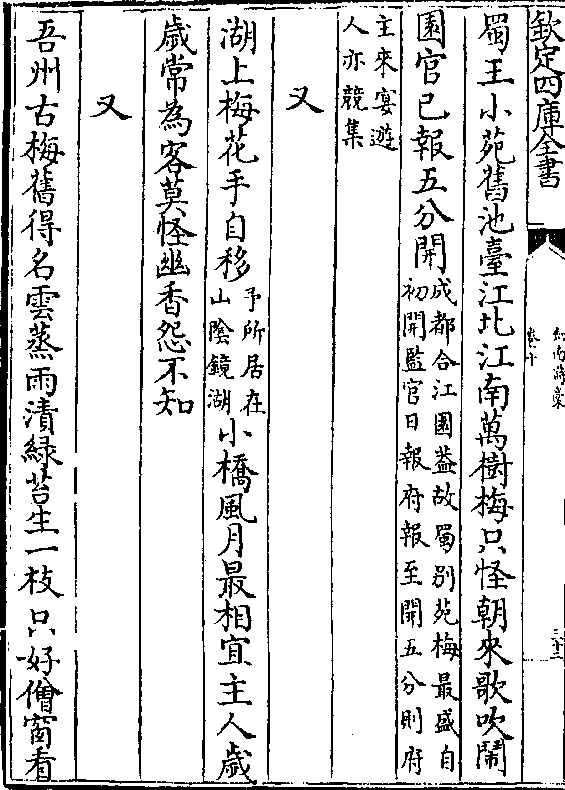 欽定四庫全書
劒南詩稾
卷十
三十二
蜀王小苑舊池臺江北江南萬樹梅只怪朝來歌吹鬧
園官已報五分開成都合江園葢故蜀别苑梅最盛自
初開監官日報府報至開五分則府
主來宴遊
人亦競集
又
湖上梅花手自移予所居在
山隂鏡湖小橋風月最相宜主人歲
歲常為客莫怪幽香怨不知
又
吾州古梅舊得名雲蒸雨漬緑苔生一枝只好僧窗看